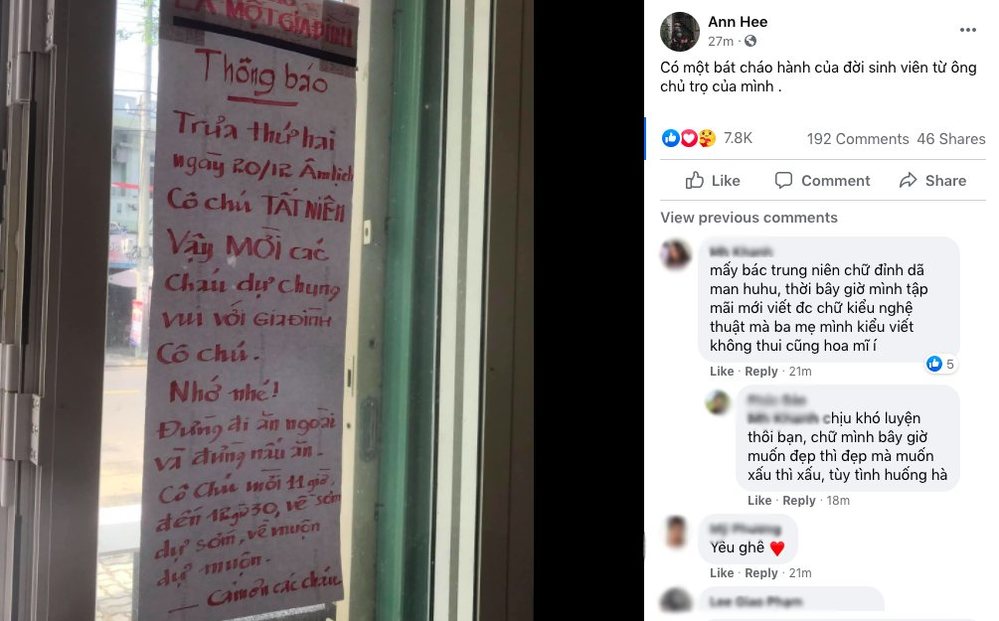 LÀ MỘT GIA ĐÌNH
Thông báo
Trưa thứ hai
ngày 20/12 Âm lịch
Cô chú TẤT NIÊN
Vậy MỜI các
Cháu dự chung
vui với GIA ĐÌNH
Cô chú.
Nhớ nhé!
Đừng đi ăn ngoài
và đừng nấu ăn.
Cô Chú mời 11 giờ,
đến 12g30, về sớm
dự sớm, về muộn
dự muộn.
— Cảm ơn các cháu
Ann Hee
27m
Có một bát cháo hành của đời sinh viên từ ông
chủ trọ của mình .
7.8K 192 Comments 46 Shares
Like Comment Share
View previous comments
Mh Khanh
mấy bác trung niên chữ đỉnh dã
man huhu, thời bây giờ mình tập
mãi mới viết đc chữ kiểu nghệ
thuật mà ba mẹ mình kiểu viết
không thui cũng hoa mĩ í
5
Like · Reply · 21m
Mh Khanh chịu khó luyện
thôi bạn, chữ mình bây giờ
muốn đẹp thì đẹp mà muốn
xấu thì xấu, tùy tình huống hà
Like · Reply · 18m
Mỹ Phương
Yêu ghê
Like · Reply · 21m
Lee Giao Phạm